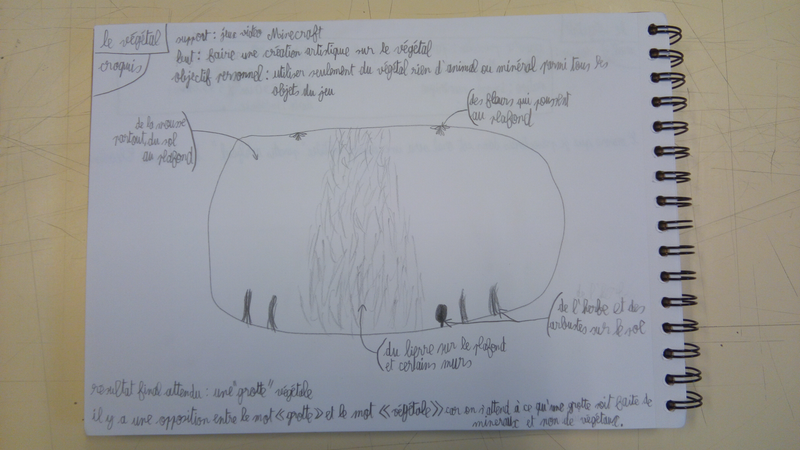 le végétal
croquis
support : jeu vidéo Minecraft
but : faire une création artistique sur le végétal
objectif personnel : utiliser seulement du végétal rien d'animal ou minéral parmi tous les
objets du jeu
de la mousse
partout, du sol
au plafond
des fleurs qui poussent
au plafond
de l'herbe et des
arbustes sur le sol
du lierre sur le plafond
et certains murs
resultat final attendu : une "grotte" végétale
il y a une opposition entre le mot «grotte» et le mot «végétale» car on s'attend à ce qu'une grotte soit faite de
mineraux et non de végétaux.